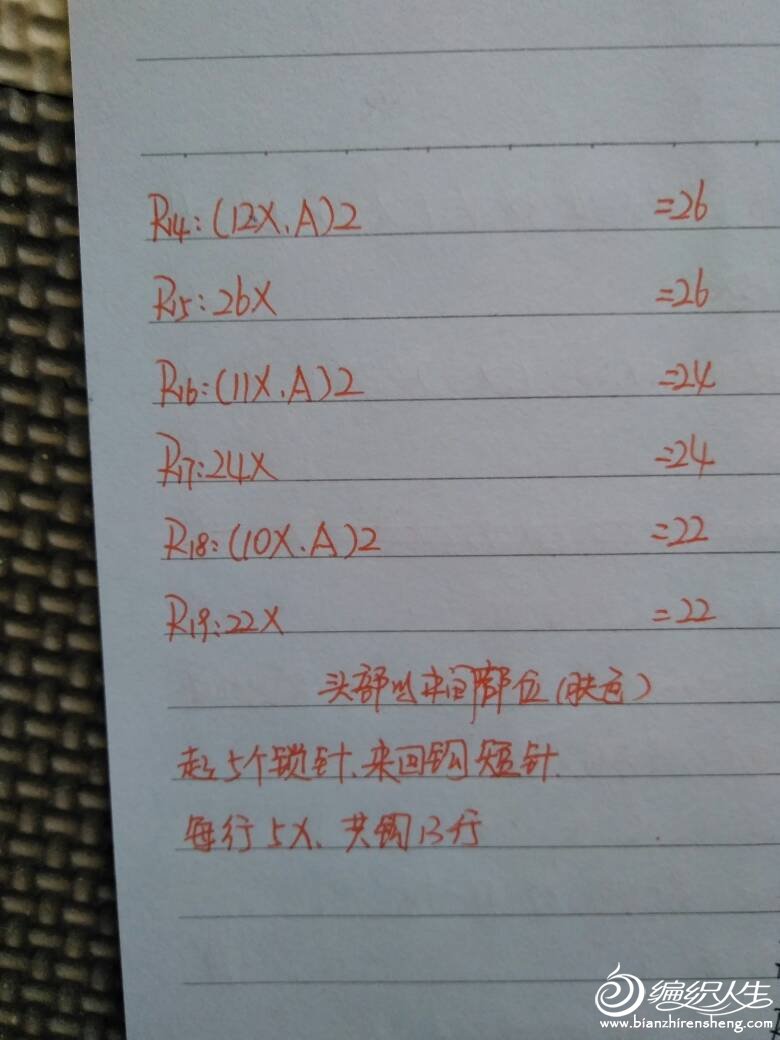 R14:(12X.A)2 =26
R15:26X =26
R16:(11X.A)2 =24
R17:24X =24
R18:(10X.A)2 =22
R19:22X =22
头部中间部位(肤色)
起5个锁针.来回钩短针.
每行5X、共钩13行
编织人生
www.bianzhirensheng.com